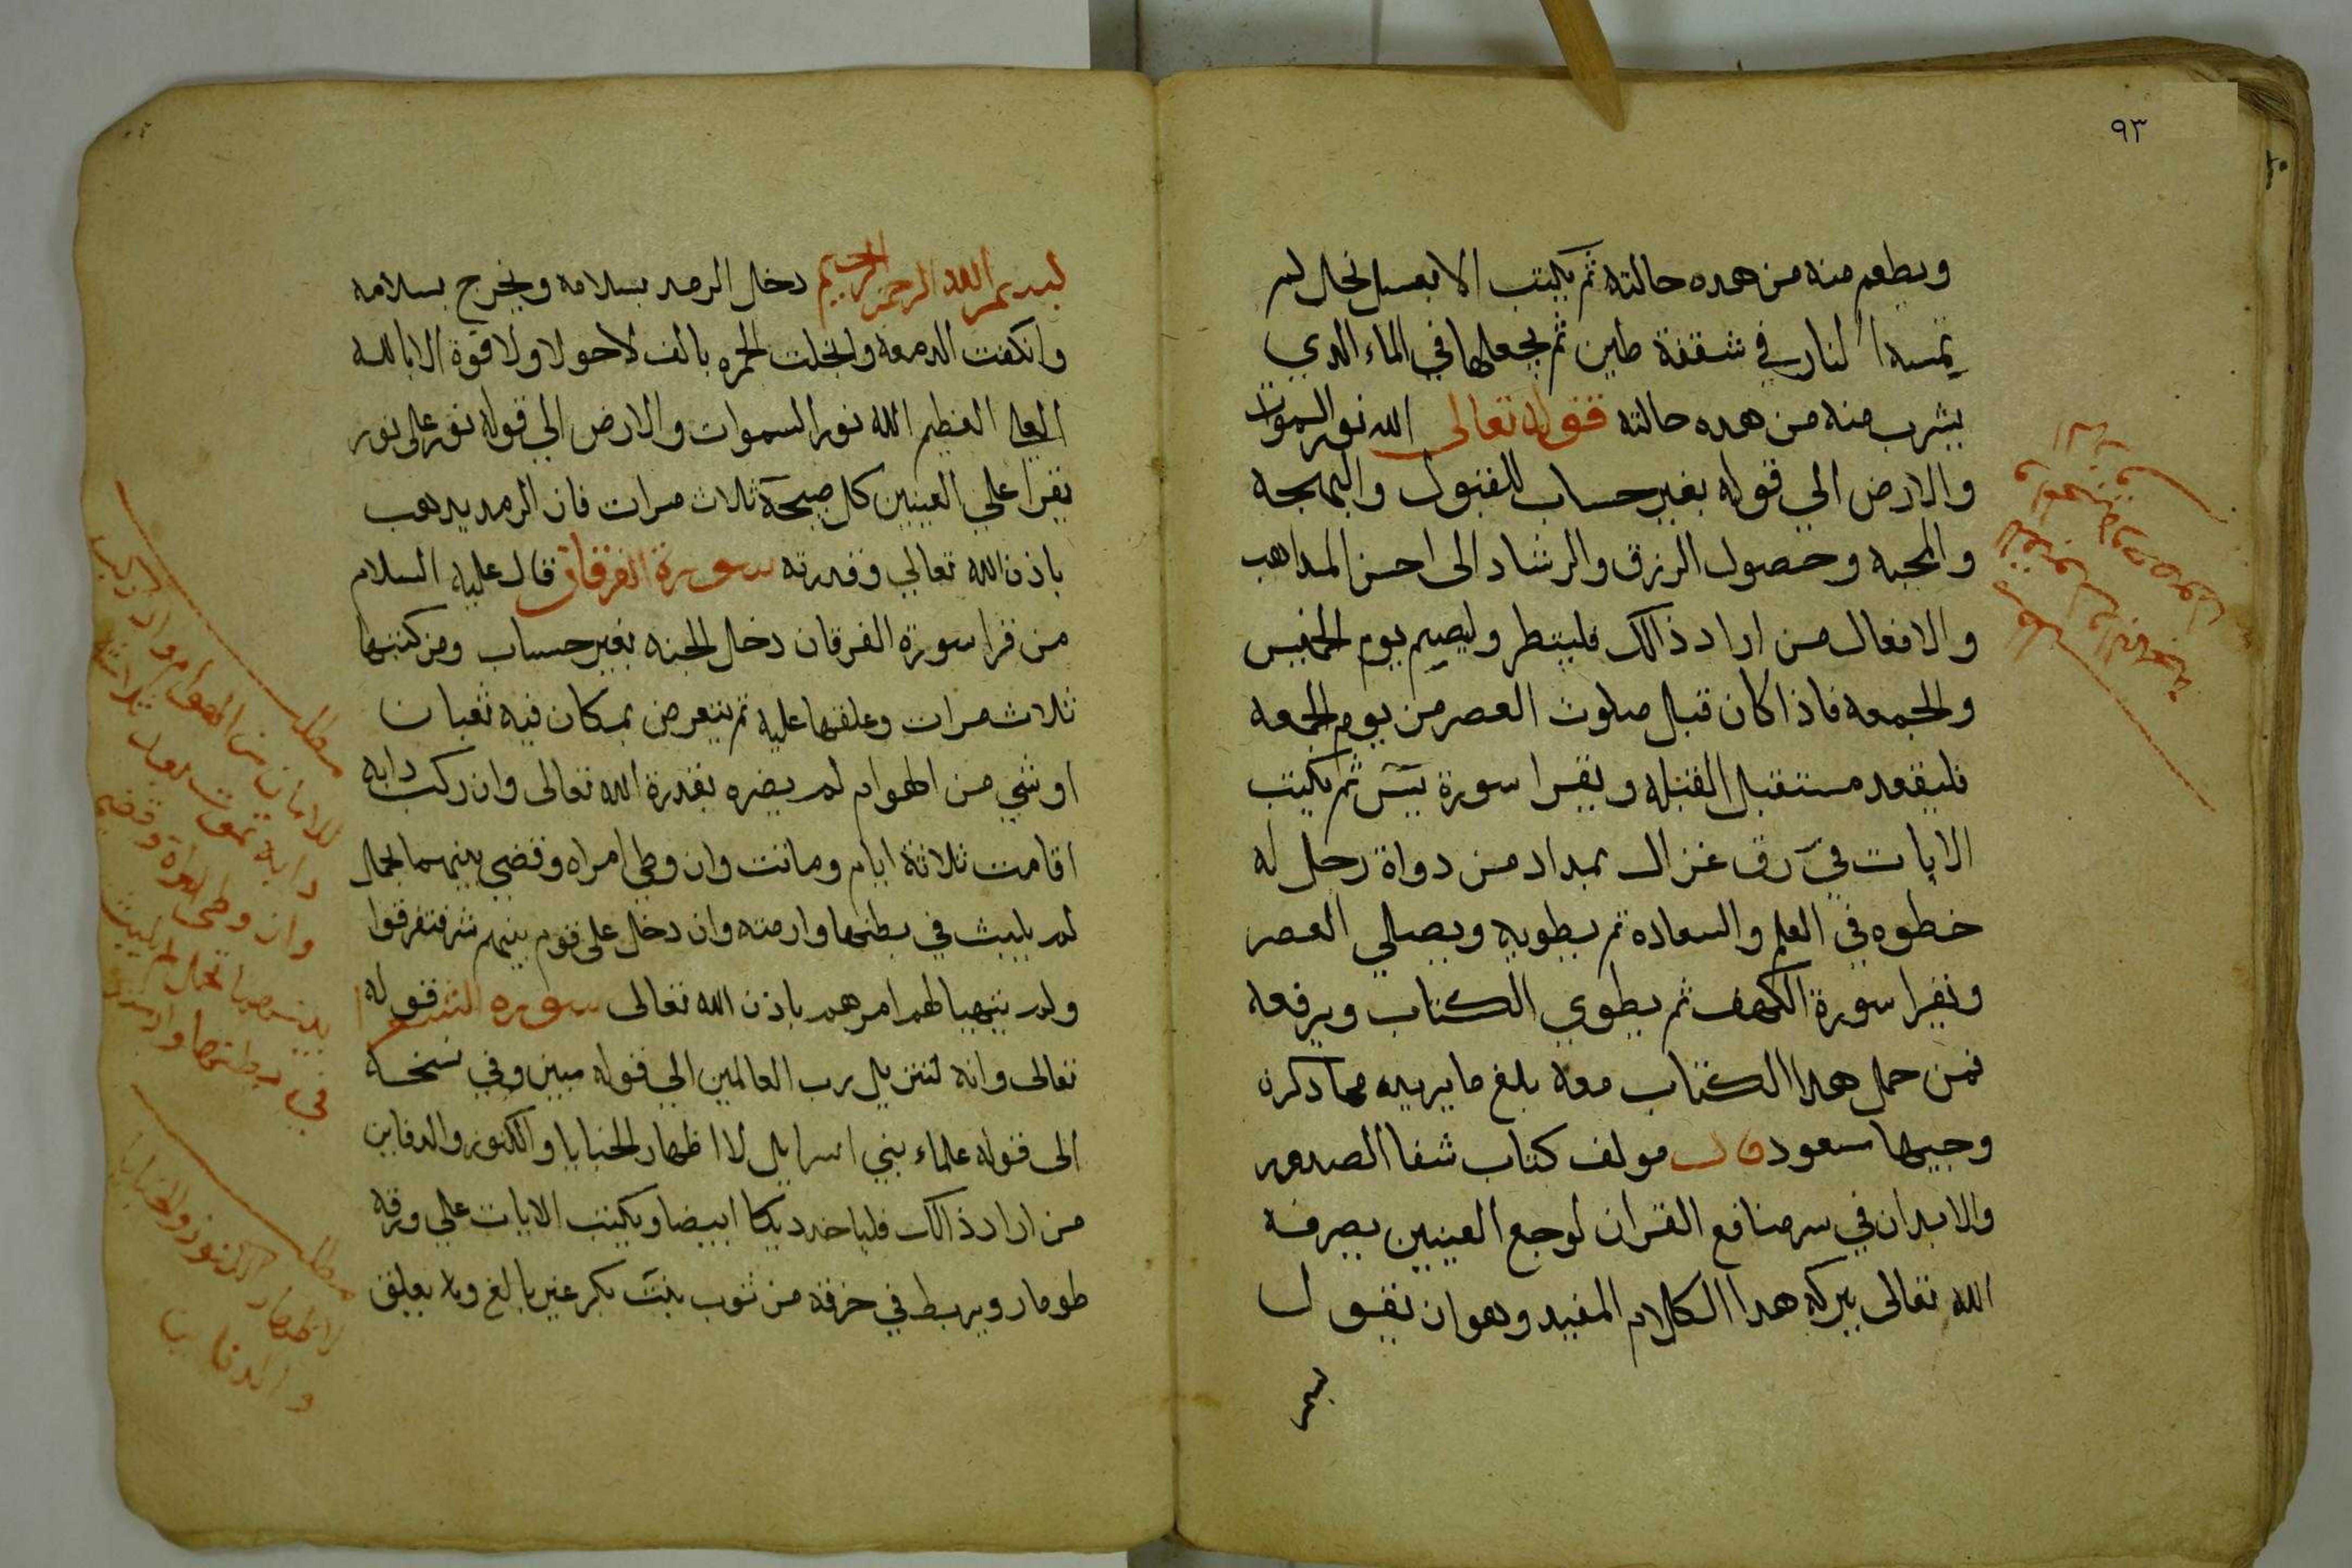 ٩٣
ويطعم منه من هده حالته ثم يكتب الا بعسل نحل لم
تمسه النار في شقفة طين ثم يجعلها في الماء الدي
يشرب منه من هده حالته قوله تعالى الله نور السموات
والارض الي قوله بغير حساب للقبول والبهجه
والمحبه وحصول الرزق والرشاد الى احسن المداهب
والافعال من اراد ذالك فليتطر وليصيم يوم الخميس
والجمعه فاذا كان قبل صلوث العصر من يوم الجمعه
فليقعد مستقبل القبله ويقرا سورة يس ثم يكتب
الايات في رق غزال بمداد من دواة رجل له
خطوه في العلم والسعاده ثم يطويه ويصلي العصر
ويقرا سورة الكهف ثم يطوي الكتاب ويرفعه
فمن حمل هدا الكتاب معه بلغ ما يريده مما دكرن
وجيها سعود قال مولف كتاب شفا الصدور
والابدان في سر منافع القران لوجع العينين يصرفه
الله تعالى ببركه هدا الكلام المفيد وهو ان تقول
بسم
بسم الله الرحمن الرحيم دخل الرمد بسلامه ويخرج بسلامه
وانكفت الدمعة وانجلت الحمره بالف لاحولا ولا قوة الا بالله
العلي العظيم الله نور السموات والارض الي قوله نور على نور
يقرا علي العينين كل صبحة ثلاث مرات فان الرمد يدهب
باذن الله تعالي وقدرته سورة الفرقان قال عليه السلام
من قرا سورة الفرقان دخل الجنه بغير حساب ومن كتبها
ثلاث مرات وعلقها عليه ثم يتعرض بمكان فيه ثعبان
اوشي من الهوام لم يضره بقدرة الله تعالى وان ركب دابه
اقامت ثلاثة ايام وماتت وان وطي امراه وقضي بينهما بحمل
لم يلبث في بطنها وارمته وان دخل على قوم بينهم شر تفرقوا
ولم يتهيا لهم امرهم باذن الله تعالى سوره الشعرا قوله
تعالى وانه لتنزيل رب العالمين الي قوله مبين وفي نسخه
الى قوله علماء بني اسرايل لا اظهار الخبايا والكنوز والدفاين
من اراد ذالك فلياخد ديكا ابيضا ويكتب الايات علي ورقه
طومار ويربط في خرقه من ثوب بنت بكر غير بالغ وﻻ يعلق
مطلب
للامان من الهوام وان ركب
دابة تموت بعد ثلاثة
وان وطى امراة وقضى
بينهما بحمل لم يلبث
في بطنها وارمته
مطلب
لاظهار الكنوز والخبايا
والدفاين